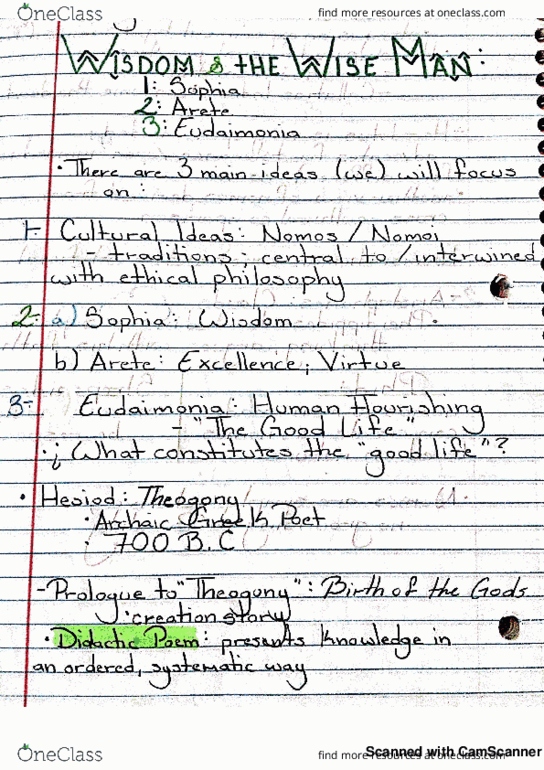 OneClass
find more resources at oneclass.com
WISDOM & THE WISE MAN:
1: Sophia
2: Arete
3: Eudaimonia
• There are 3 main ideas (we) will focus
on:
1- Cultural Ideas: Nomos / Nomoi
- traditions: central to / interwined
with ethical philosophy
2- a) Sophia: Wisdom
b) Arete: Excellence, Virtue
3- Eudaimonia: Human Flourishing
- "The Good Life"
•¿ What constitutes the "good life"?
• Hesiod: Theogony
• Archaic Greek Poet
• 700 B.C
- Prologue to "Theogony": Birth of the Gods
• creation story
• Didactic Poem: presents knowledge in
an ordered, systematic way
OneClass
find more resources at oneclass.com
Scanned with CamScanner